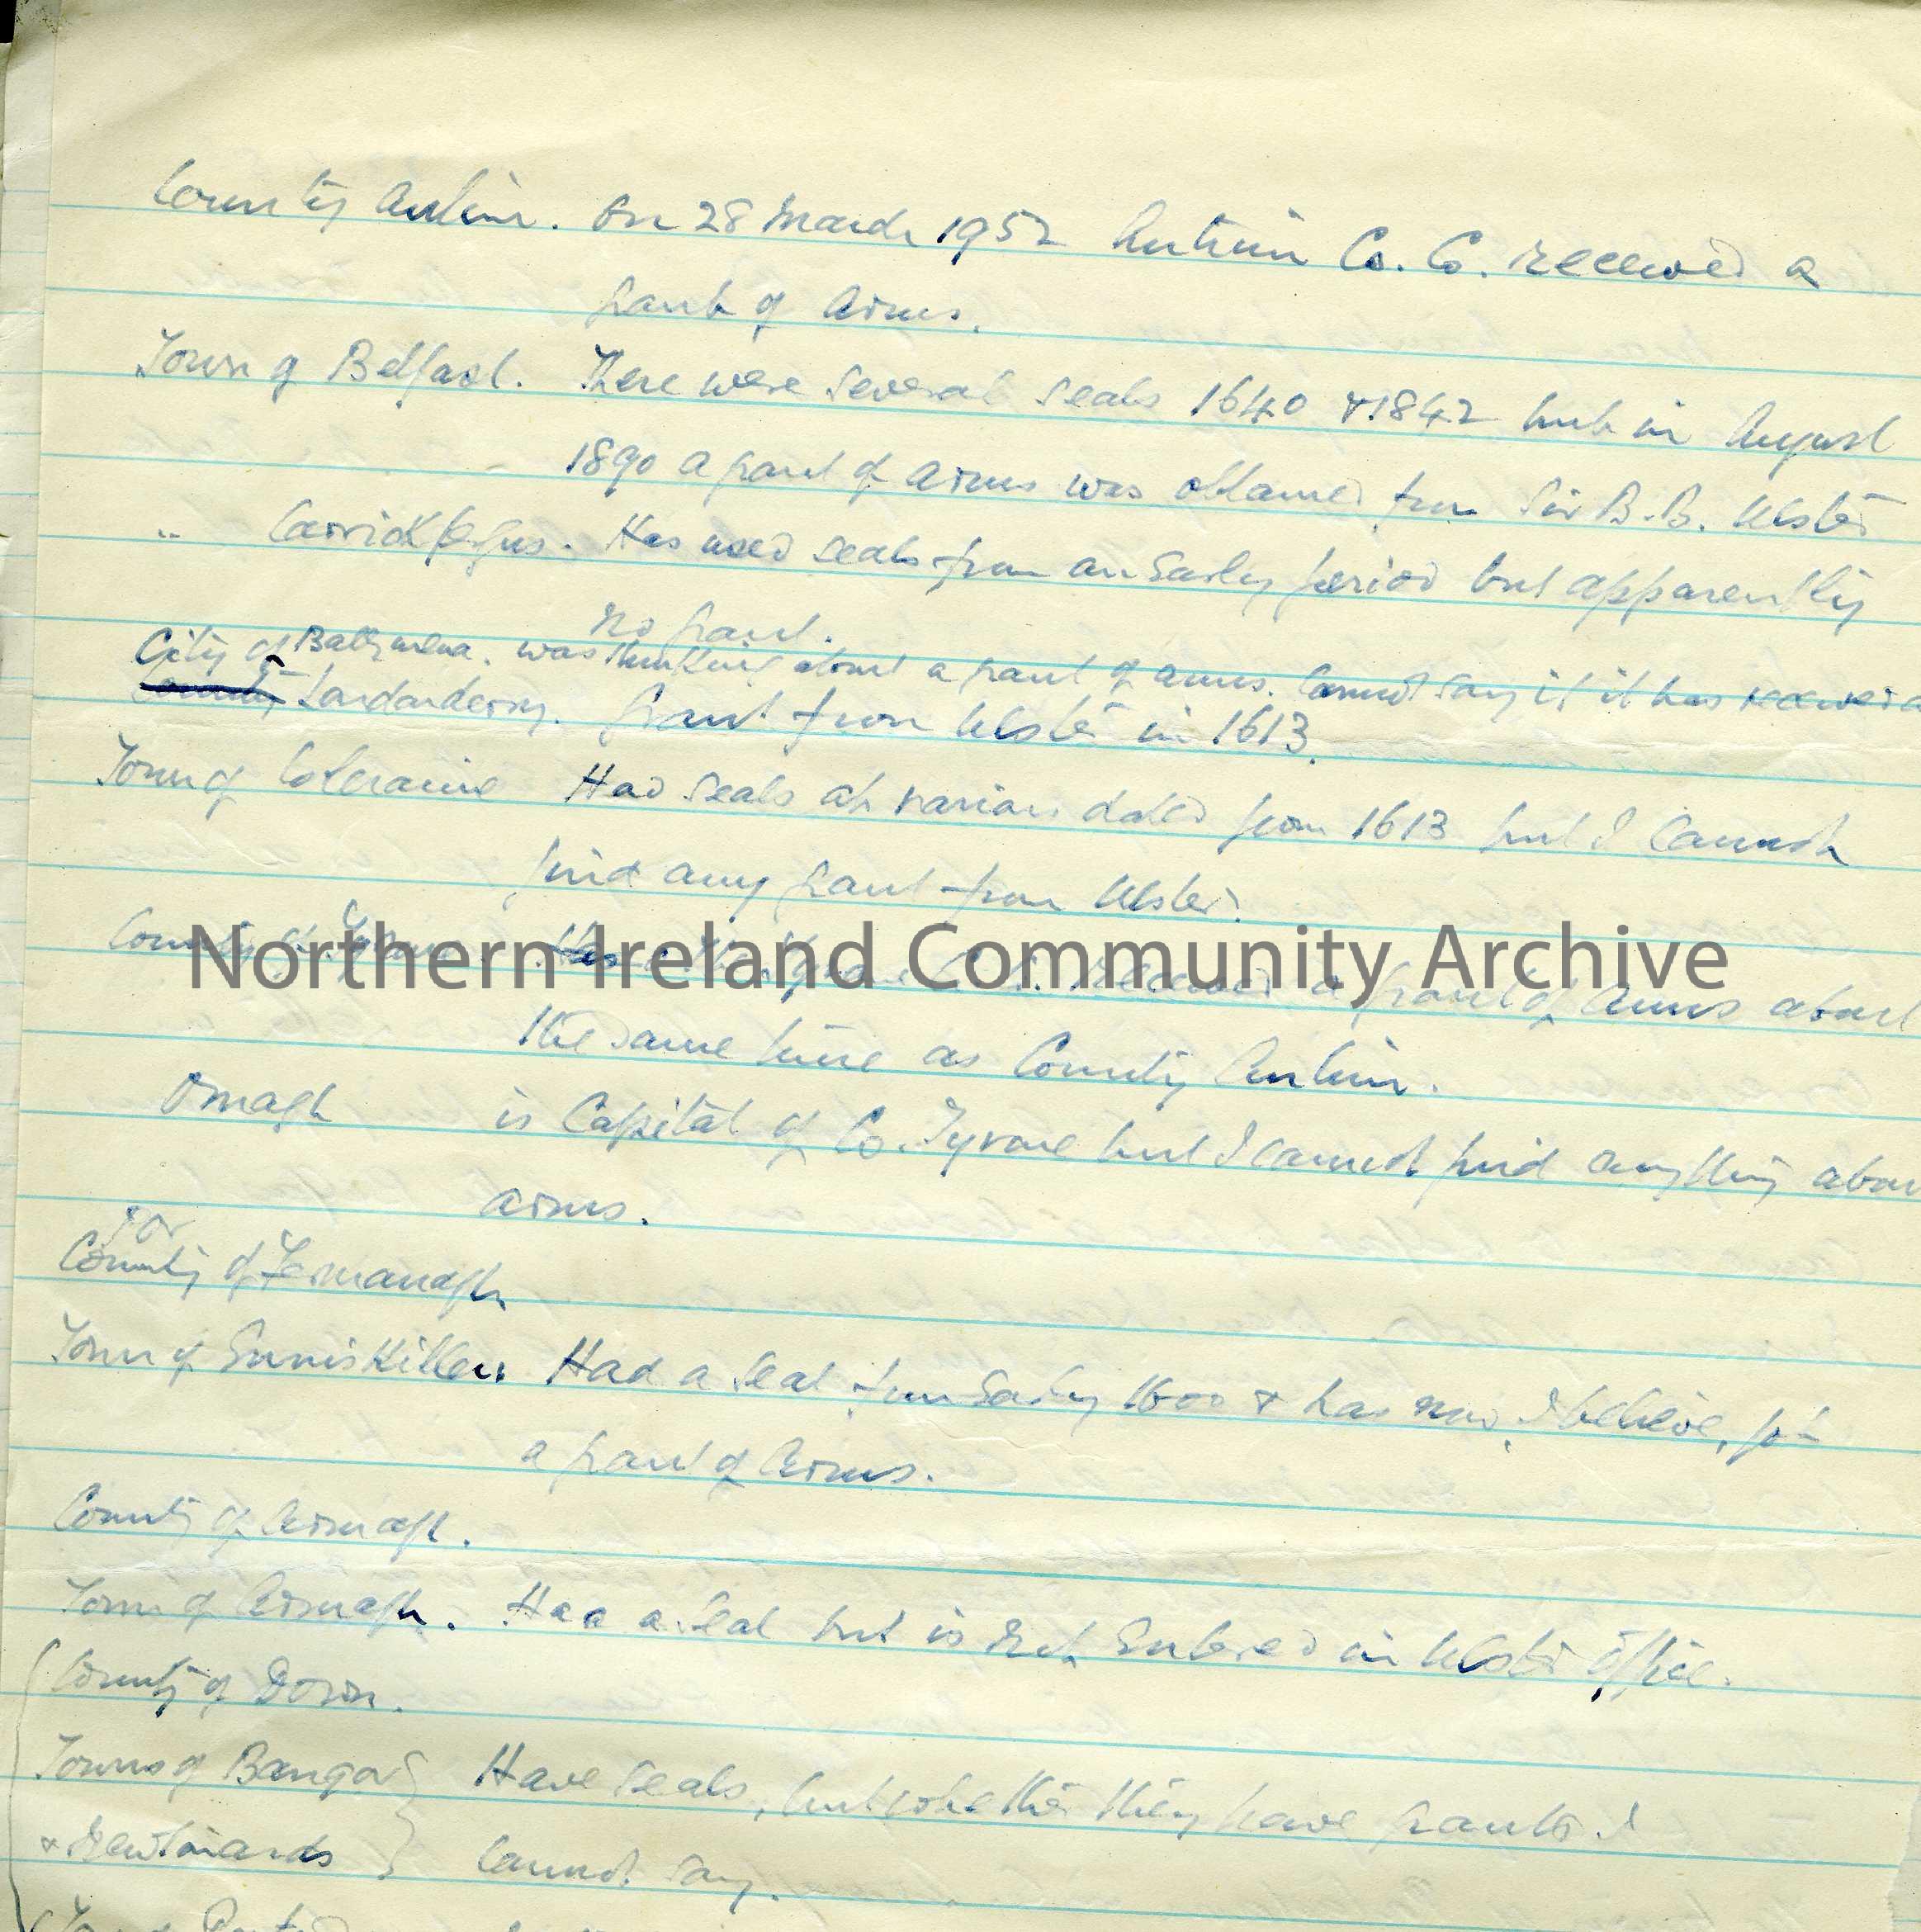 County Antrim. On 28 March 1952 Antrim Co. Co. received a
grant of Arms.
Town of Belfast. There were several seals 1640 & 1842 but in August
1890 a grant of arms was obtained from Sir B.B. Ulster
" Carrickfergus. Has used seals from an early period but apparently
no grant.
Ballymena. was thinking about a grant of arms. Cannot say if it has received
City of
County Londonderry. Grant from Ulster in 1613.
Town of Coleraine Had seals at various dates from 1613 but I cannot
find any grant from Ulster.
County Tyrone Has Tyrone C.C. received a grant of Arms about
the same time as County Antrim.
Omagh is Capital of Co. Tyrone but I cannot find anything abou
arms.
for
County of Fermanagh
Town of Enniskillen Had a seal from early 1600 & has now, I believe, got
a grant of Arms.
County of Armagh.
Town of Armagh. Has a seal but is not entered in Ulster Office.
County of Down.
Towns of Bangor } Have seals, but whether they have grants I
& Newtownards } cannot say.
Northern Ireland Community Archive